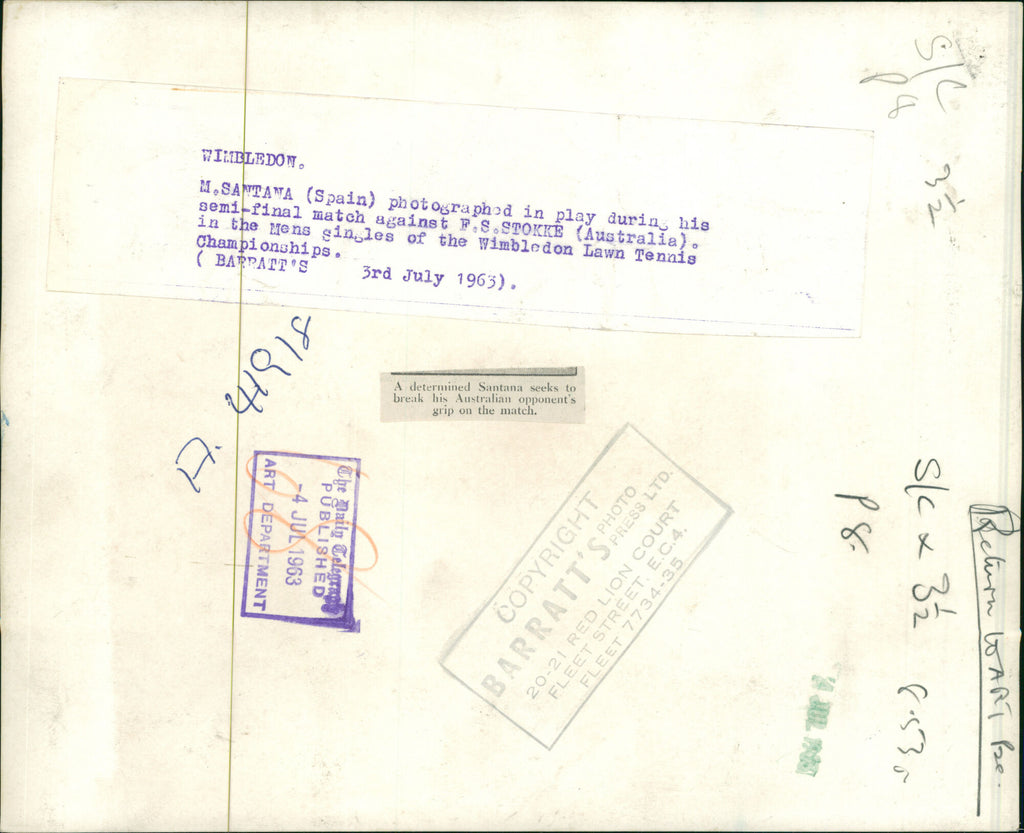 S/C
P 8
3½
WIMBLEDON.
M.SANTANA (Spain) photographed in play during his
semi-final match against F.S.STOKKE (Australia).
in the Mens singles of the Wimbledon Lawn Tennis
Championships.
( BARRATT'S 3rd July 1963).
41918
A determined Santana seeks to
break his Australian opponent's
grip on the match.
The Daily Telegraph
PUBLISHED
-4 JUL 1963
ART DEPARTMENT
COPYRIGHT
BARRATT'S PHOTO
PRESS LTD.
20-21 RED LION COURT
FLEET STREET. E.C.4.
FLEET 7734-35
S/C x 3½
P 8.
Return to ART
4 JUL